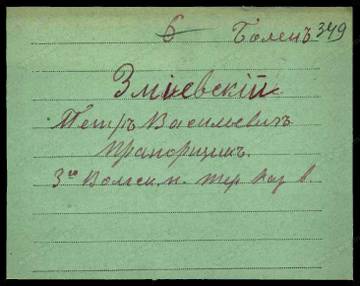 6 Боленъ 349
Зміевскій
Петръ Васильевичъ
Прапорщикъ.
3го Волгск. п. тер каз в.